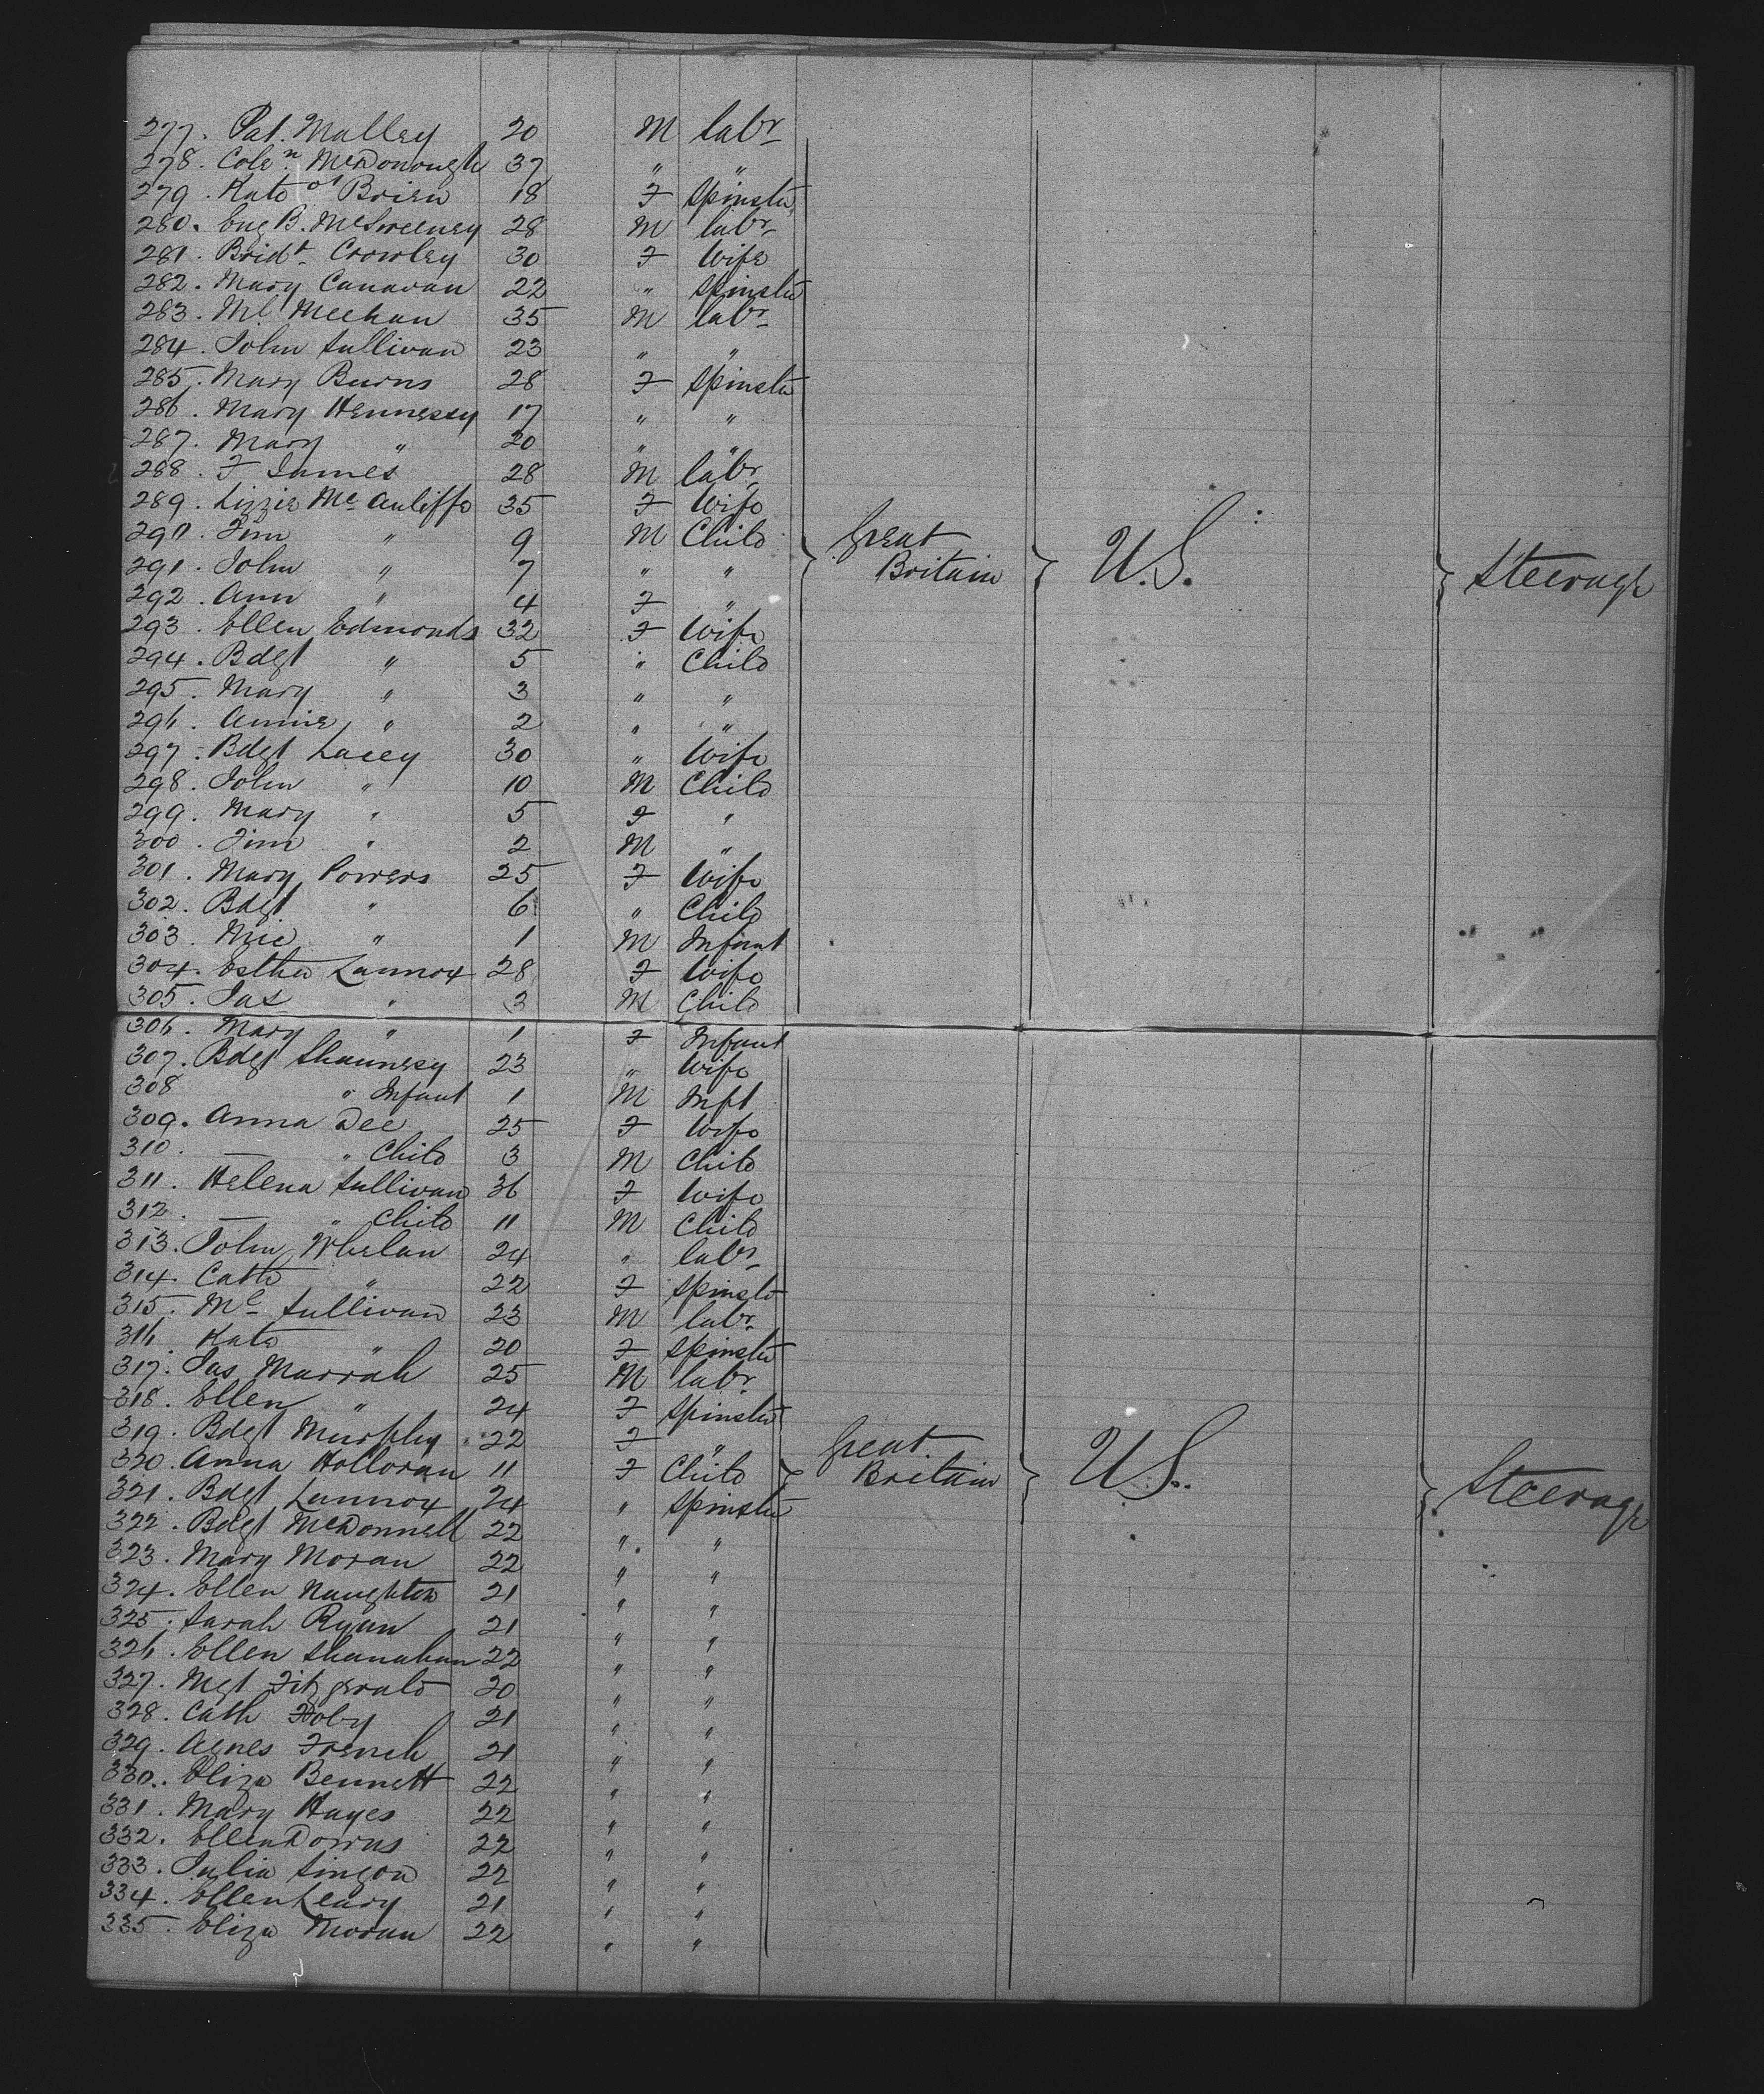 277. Pat. Malley 20 M labr
278. Coleⁿ McDonough 37 " "
279. Kate O'Brien 18 F Spinster
280. Eug B. McSweeney 28 M labr
281. Bridt Crowley 30 F Wife
282. Mary Canavan 22 " Spinster
283. Ml Meehan 35 M labr
284. John Sullivan 23 " "
285. Mary Burns 28 F Spinster
286. Mary Hennessy 17 " "
287. Mary " 20 " "
288. F James 28 M labr
289. Lizzie Mc Auliffe 35 F Wife
290. Tim " 9 M Child Great
291. John " 7 " " Britain U.S. Steerage
292. Ann " 4 F "
293. Ellen Edmonds 32 F Wife
294. Bdgt " 5 " Child
295. Mary " 3 " "
296. Annie " 2 " "
297. Bdgt Lacey 30 " Wife
298. John " 10 M Child
299. Mary " 5 F "
300. Tim " 2 M "
301. Mary Powers 25 F Wife
302. Bdgt " 6 " Child
303. Mic " 1 M Infant
304. Esther Lannox 28 F Wife
305. Jas " 3 M Child
306. Mary " 1 F Infant
307. Bdgt Shaunesy 23 " Wife
308 " Infant 1 M Inft
309. Anna Dee 25 F Wife
310. — " Child 3 M Child
311. Helena Sullivan 36 F Wife
312. — " Child 11 M Child
313. John Whelan 24 " labr
314. Cath " 22 F Spinstr
315. Ml Sullivan 23 M labr
316. Kate " 20 F Spinster
317. Jas Marrah 25 M labr
318. Ellen " 24 F Spinster
319. Bdgt Murphy 22 F " Great
320. Anna Holloran 11 F Child Britain U.S. Steerage
321. Bdgt Lannox 24 " Spinster
322. Bdgt McDonnell 22 " "
323. Mary Moran 22 " "
324. Ellen Naughton 21 " "
325. Sarah Ryan 21 " "
326. Ellen Shanahan 22 " "
327. Mgt Fitzgerald 20 " "
328. Cath 21 " "
329. Agnes French 21 " "
330. Eliza Bennett 22 " "
331. Mary Hayes 22 " "
332. Ellen Downs 22 " "
333. Julia 22 " "
334. Ellen Leary 21 " "
335. Eliza Moran 22 " "